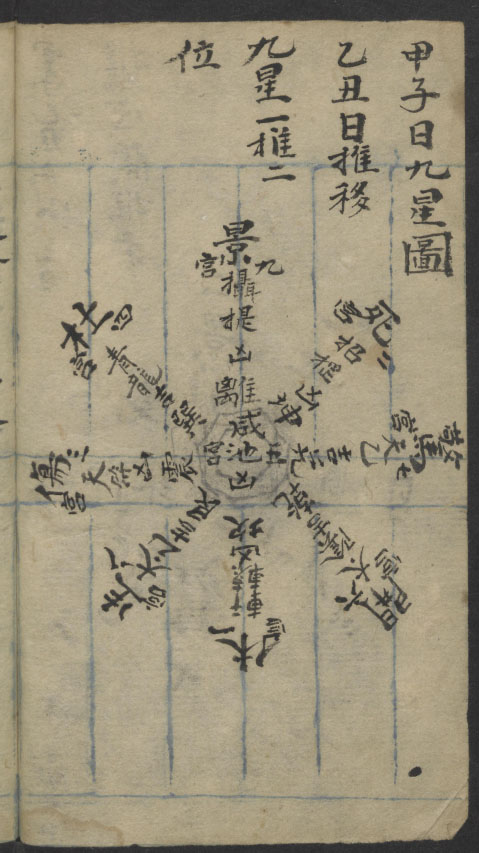 甲子日九星圖
乙丑日推移
九星一推二
位
景九宮
攝提凶離
死二宮
招搖凶坤
驚七宮
天乙吉兌
開六宮
太陰吉乾
休一宮
軒轅凶坎
生八宮
太乙吉艮
傷三宮
天符凶震
杜四宮
青龍吉巽
五宮
咸池凶